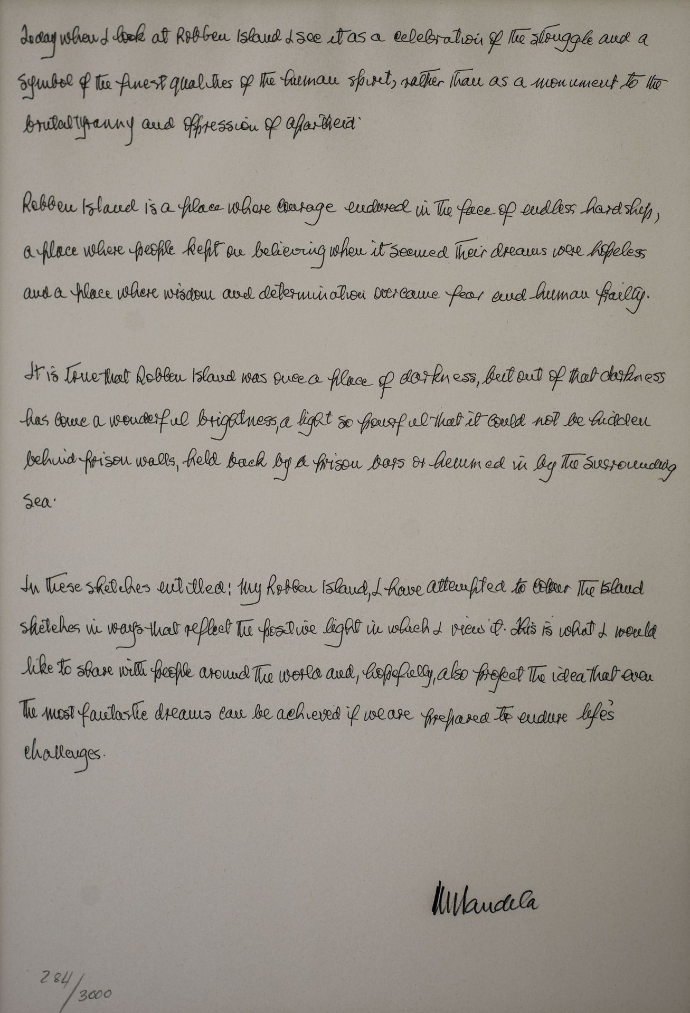 Today when I look at Robben Island I see it as a celebration of the struggle and a
symbol of the finest qualities of the human spirit, rather than as a monument to the
brutal tyranny and oppression of apartheid.
Robben Island is a place where courage endured in the face of endless hardship,
a place where people kept on believing when it seemed their dreams were hopeless
and a place where wisdom and determination overcame fear and human frailty.
It is true that Robben Island was once a place of darkness, but out of that darkness
has come a wonderful brightness, a light so powerful that it could not be hidden
behind prison walls, held back by a prison bars or hemmed in by the surrounding
sea.
In these sketches entitled: My Robben Island, I have attempted to colour the Island
sketches in ways that reflect the positive light in which I view it. This is what I would
like to share with people around the world and, hopefully, also project the idea that even
the most fantastic dreams can be achieved if we are prepared to endure life's
challenges.
NMandela
284/3000